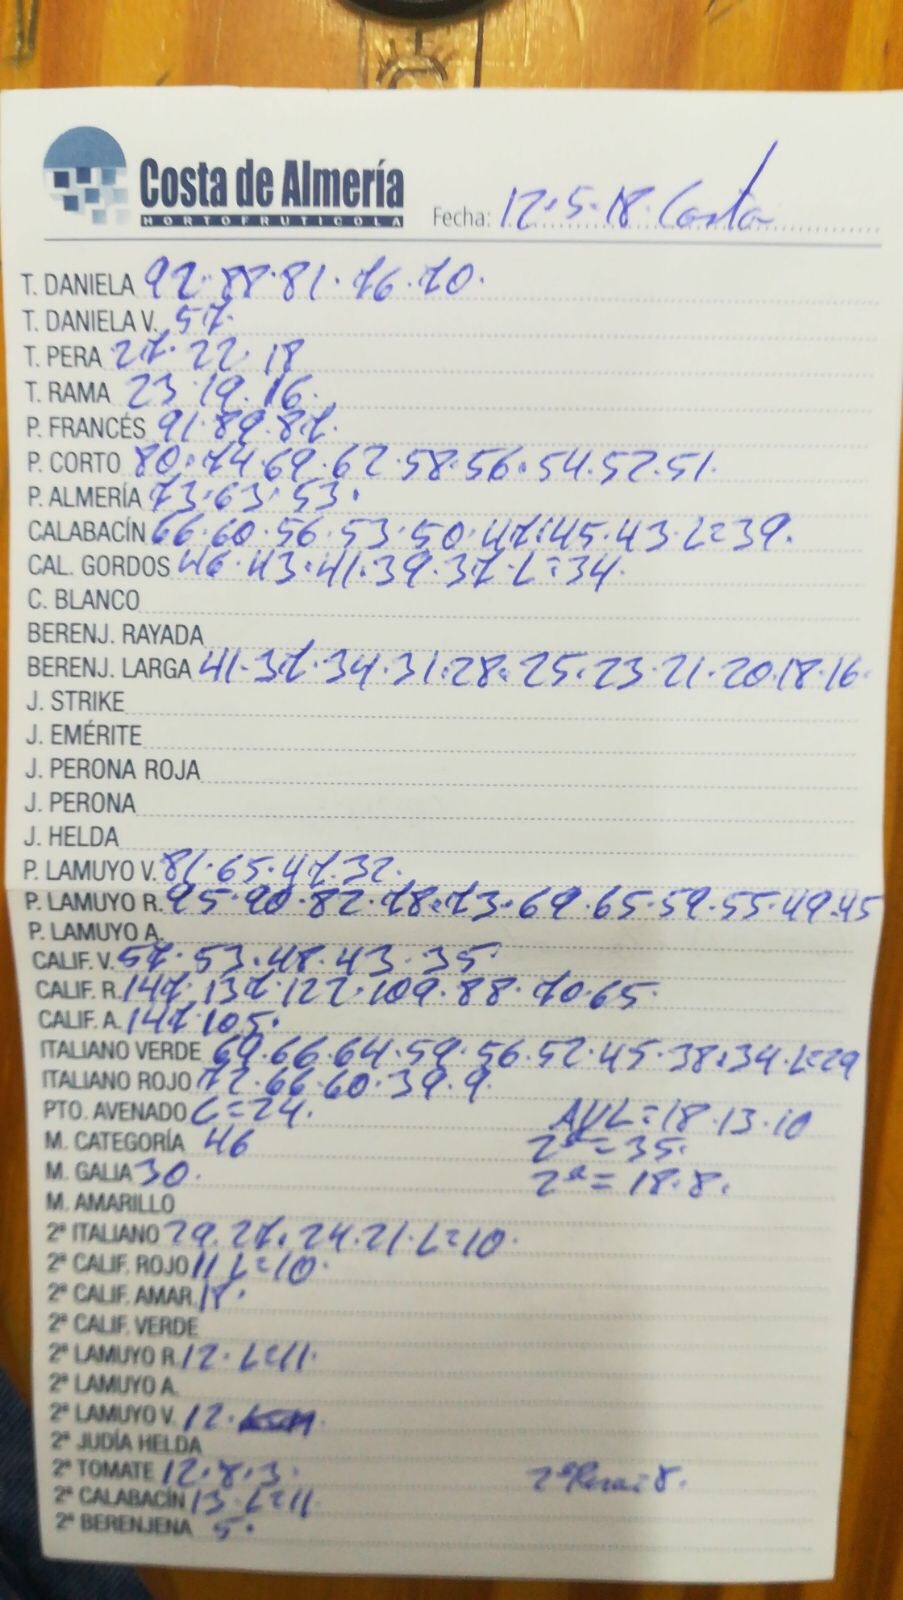 Costa de Almería
HORTOFRUTICOLA
Fecha: 12.5.18. Costa
T. DANIELA 92.88.81.76.70.
T. DANIELA V. 57.
T. PERA 27.22.18
T. RAMA 23 19.16.
P. FRANCÉS 91.89.87.
P. CORTO 80.74.69.62.58.56.54.52.51.
P. ALMERÍA 73.63.53.
CALABACÍN 66.60.56.53.50.47.45.43.L=39.
CAL. GORDOS 46.43.41.39.37.L=34.
C. BLANCO
BERENJ. RAYADA
BERENJ. LARGA 41.37.34.31.28.25.23.21.20.18.16.
J. STRIKE
J. EMÉRITE
J. PERONA ROJA
J. PERONA
J. HELDA
P. LAMUYO V. 81.65.47.32.
P. LAMUYO R. 95.90.82.78.73.69.65.59.55.49.45
P. LAMUYO A.
CALIF. V. 57.53.48.43.35.
CALIF. R. 147.137.122.109.88.70.65.
CALIF. A. 147.105.
ITALIANO VERDE 69.66.64.59.56.52.45.38.34.L=29
ITALIANO ROJO 72.66.60.39.9.
PTO. AVENADO L=24. AVL=18.13.10
M. CATEGORÍA 46 2ª=35.
M. GALIA 30. 2ª=18.8.
M. AMARILLO
2ª ITALIANO 29.27.24.21.L=10.
2ª CALIF. ROJO 11 L=10.
2ª CALIF. AMAR.
2ª CALIF. VERDE
2ª LAMUYO R. 12.L=11.
2ª LAMUYO A.
2ª LAMUYO V. 12.
2ª JUDÍA HELDA
2ª TOMATE 12.8.3. 2ª Pera=8.
2ª CALABACÍN 13.L=11.
2ª BERENJENA 5.